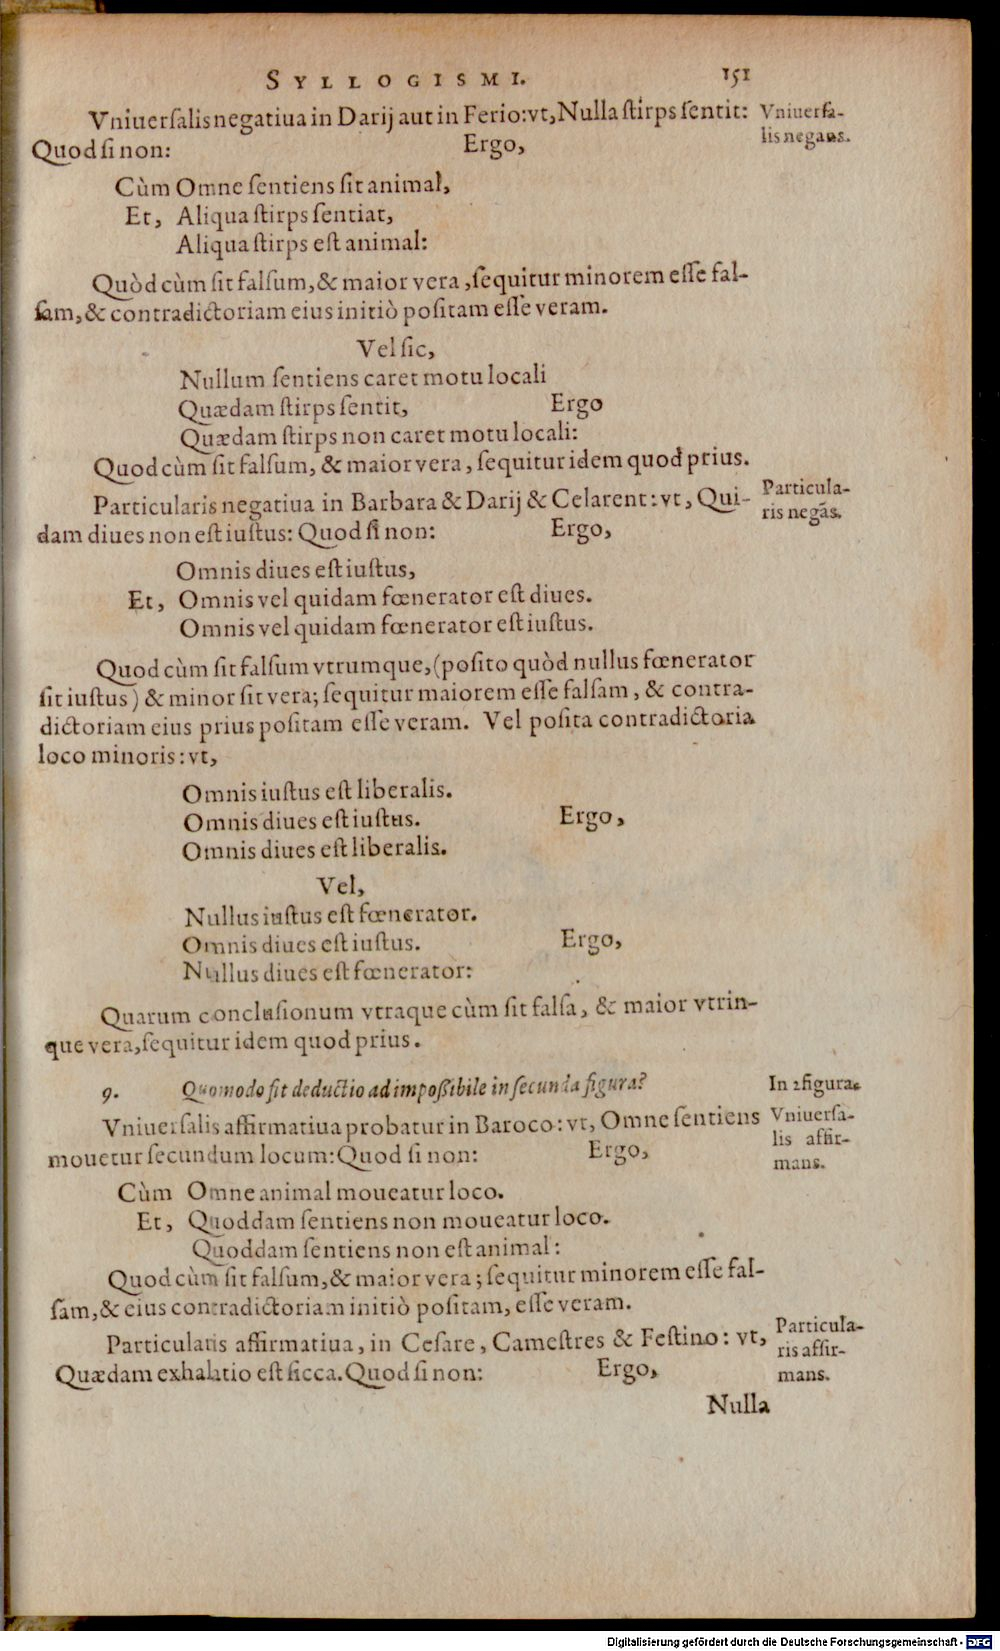 SYLLOGISMI. 151
Vniuersalis negatiua in Darij aut in Ferio: vt, Nulla stirps sentit: Vniuersa-
lis negans.
Quod si non: Ergo,
Cùm Omne sentiens sit animal,
Et, Aliqua stirps sentiat,
Aliqua stirps est animal:
Quòd cùm sit falsum, & maior vera, sequitur minorem esse fal-
sam, & contradictoriam eius initiò positam esse veram.
Vel sic,
Nullum sentiens caret motu locali
Quædam stirps sentit, Ergo
Quædam stirps non caret motu locali:
Quod cùm sit falsum, & maior vera, sequitur idem quod prius.
Particularis negatiua in Barbara & Darij & Celarent: vt, Qui- Particula-
ris negãs.
dam diues non est iustus: Quod si non: Ergo,
Omnis diues est iustus,
Et, Omnis vel quidam fœnerator est diues.
Omnis vel quidam fœnerator est iustus.
Quod cùm sit falsum vtrumque, (posito quòd nullus fœnerator
sit iustus) & minor sit vera; sequitur maiorem esse falsam, & contra-
dictoriam eius prius positam esse veram. Vel posita contradictoria
loco minoris: vt,
Omnis iustus est liberalis.
Omnis diues est iustus. Ergo,
Omnis diues est liberalis.
Vel,
Nullus iustus est fœnerator.
Omnis diues est iustus. Ergo,
Nullus diues est fœnerator:
Quarum conclusionum vtraque cùm sit falsa, & maior vtrin-
que vera, sequitur idem quod prius.
9. Quomodo fit deductio ad impoßibile in secunda figura? In 2 figura.
Vniuersalis affirmatiua probatur in Baroco: vt, Omne sentiens Vniuersa-
lis affir-
mans.
mouetur secundum locum: Quod si non: Ergo,
Cùm Omne animal moueatur loco.
Et, Quoddam sentiens non moueatur loco.
Quoddam sentiens non est animal:
Quod cùm sit falsum, & maior vera; sequitur minorem esse fal-
sam, & eius contradictoriam initiò positam, esse veram.
Particularis affirmatiua, in Cesare, Camestres & Festino: vt, Particula-
ris affir-
mans.
Quædam exhalatio est sicca. Quod si non: Ergo,
Nulla
Digitalisierung gefördert durch die Deutsche Forschungsgemeinschaft - DFG